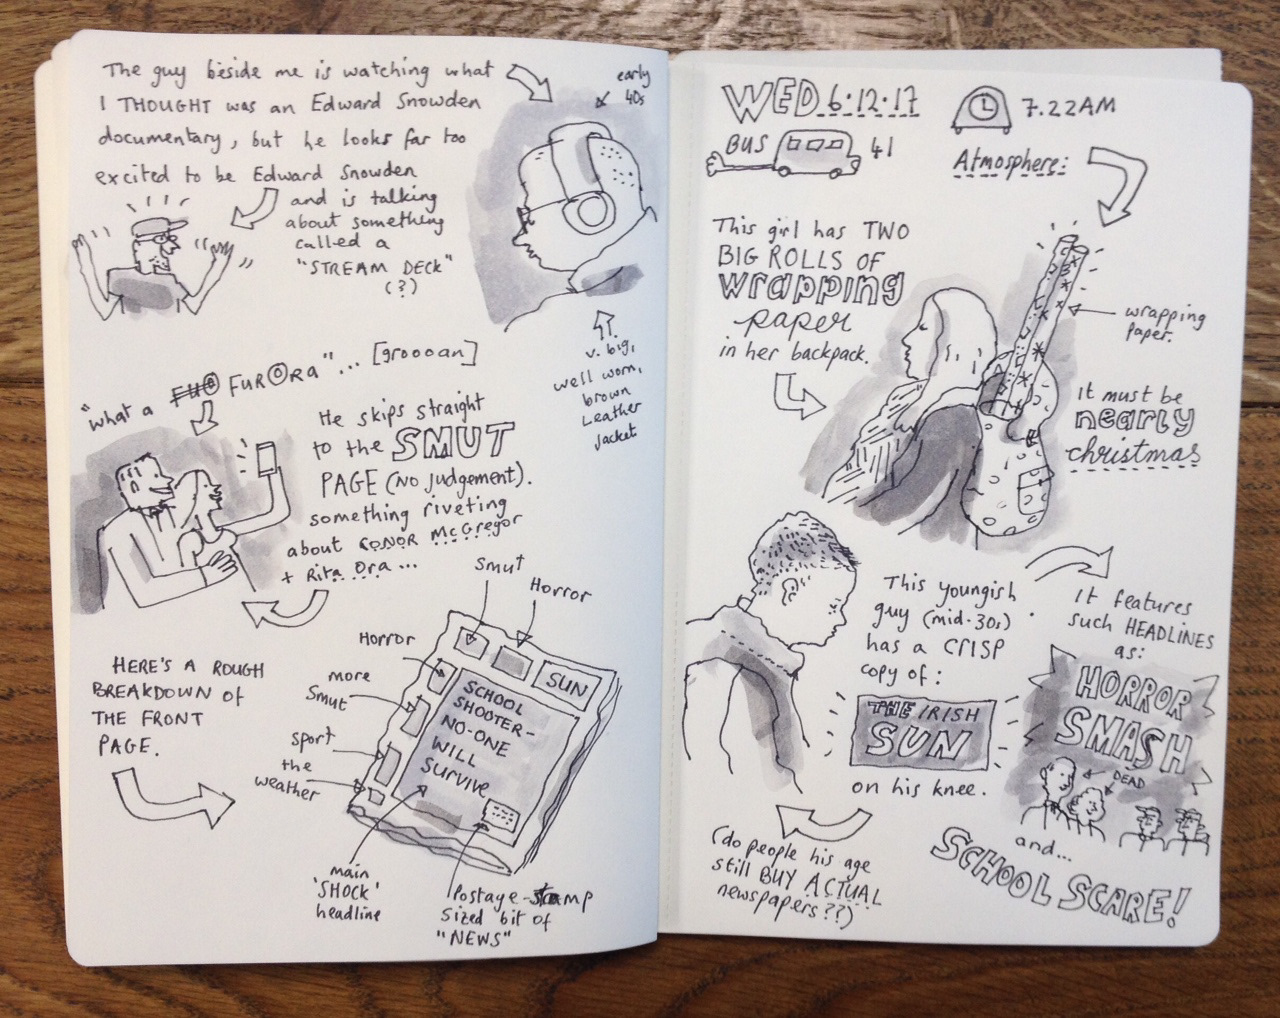 The guy beside me is watching what
I THOUGHT was an Edward Snowden
documentary, but he looks far too
excited to be Edward Snowden
and is talking
about something
called a
"STREAM DECK"
(?)
early
40s
v. big,
well worn,
brown
Leather
Jacket
"what a FUR FURORA"... [groooan]
He skips straight
to the SMUT
PAGE (NO judgement).
something riveting
about CONOR McGregor
+ Rita Ora ...
HERE'S A ROUGH
BREAKDOWN OF
THE FRONT
PAGE.
Smut
Horror
Horror
more
Smut
sport
the
weather
SUN
SCHOOL
SHOOTER-
NO-ONE
WILL
SURVIVE
main
'SHOCK'
headline
Postage-stamp
sized bit of
"NEWS"
WED 6.12.17
7.22AM
BUS 41
Atmosphere:
This girl has TWO
BIG ROLLS OF
wrapping
paper
in her backpack.
wrapping
paper.
It must be
nearly
christmas
This youngish
guy (mid-30s)
has a CRISP
copy of:
THE IRISH
SUN
on his knee.
(do people his age
still BUY ACTUAL
newspapers??)
It features
such HEADLINES
as:
HORROR
SMASH
DEAD
and...
SCHOOL SCARE!